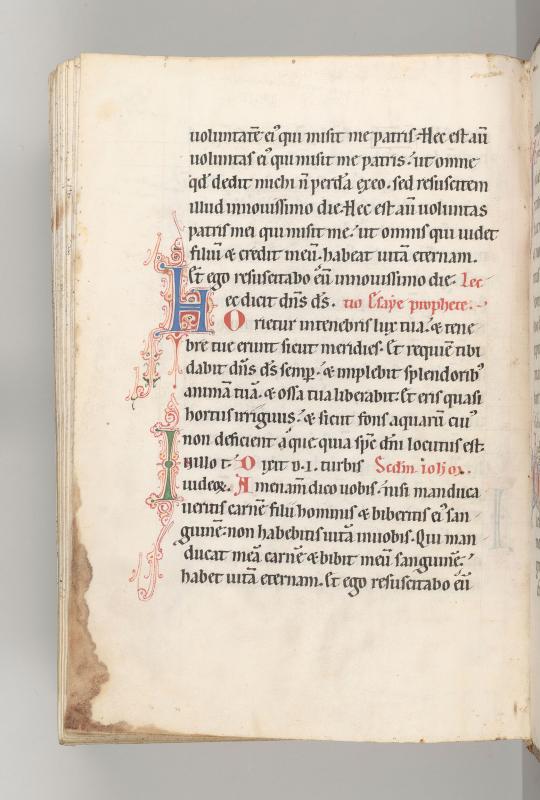 uoluntatē ei᷒ qui misit me patris. Hec est aū
uoluntas ei᷒ qui misit me patris. ut omne
qđ dedit michi n̄ perdā ex eo. sed resuscitem
illud in nouissimo die. Hec est aū uoluntas
patris mei qui misit me. ut omnis qui uidet
filiū & credit in eū. habeat uitā eternam.
Et ego resuscitabo eū in nouissimo die. Lec
Hec dicit dn̄s ds̄. tio Esaye prophete.
Orietur in tenebris lux tua. & tene
bre tue erunt sicut meridies. Et requiē tibi
dabit dn̄s ds̄ semp̲. & implebit splendorib᷒
animā tuā. & ossa tua liberabit. Et eris quasi
hortus irriguus. & sicut fons aquarū cui᷒
non deficient aque. quia sp̄e dn̄i locutus est.
In illo t. Dixit ih̄s turbis Scdm̄ ioh̄
iudeoꝝ. Amen am̄ dico uobis. nisi manduca
ueritis carnē filii hominis & biberitis ei᷒ san
guinē. non habebitis uitā in uobis. Qui man
ducat meā carnē & bibit meū sanguinē.
habet uitā eternam. Et ego resuscitabo eū